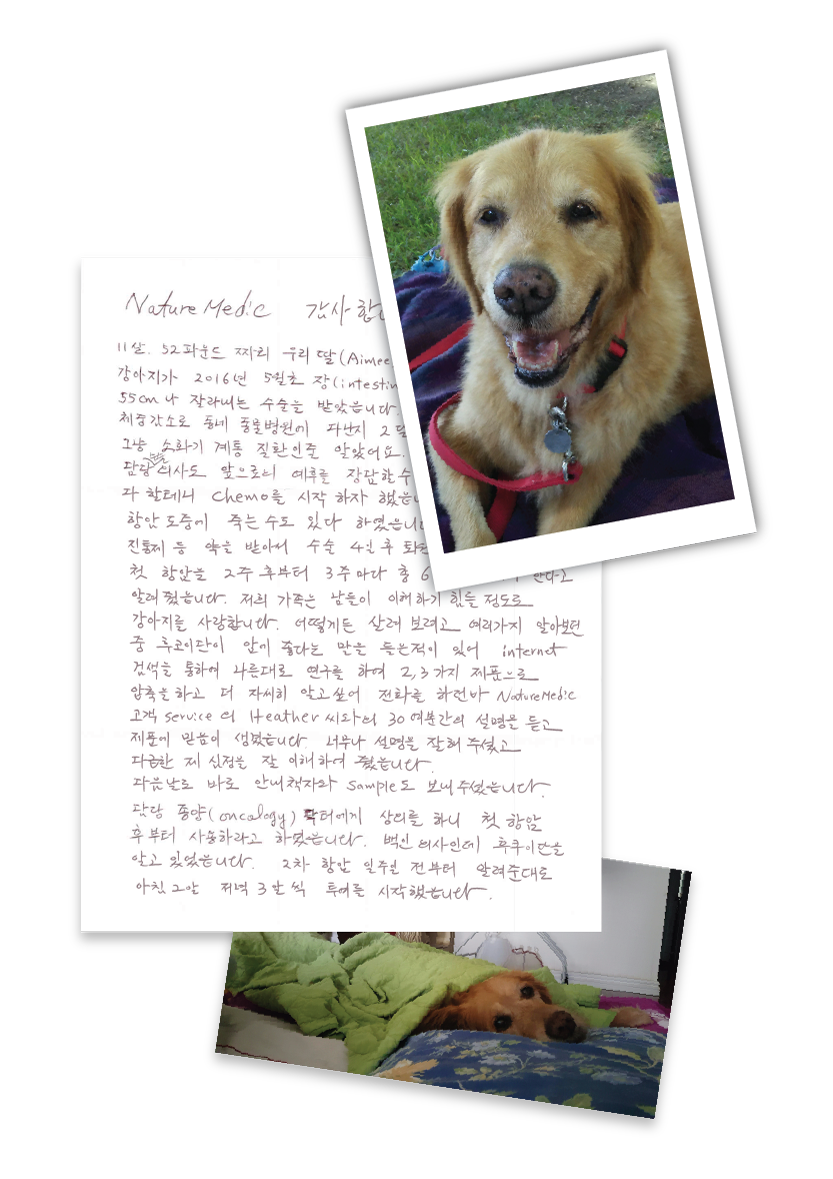 Nature Medic 감사합니
11살. 52파운드 짜리 우리 딸(Aimee
강아지가 2016년 5월초 장(intestin
55cm나 잘라내는 수술을 받았습니다.
체중감소로 동네 동물병원에 다닌지 2달
그냥 소화기 계통 질환인줄 알았어요.
담당 의사도 앞으로의 예후를 장담할수
다 할테니 chemo를 시작 하자 했습니
항암 도중에 죽는수도 있다 하였습니
진통제 등 약을 받아서 수술 4일 후 퇴원
첫 항암을 2주 후부터 3주마다 총 6 한다고
알려줬습니다. 저희 가족은 남들이 이해하기 힘들 정도로
강아지를 사랑합니다. 어떻게든 살려 보려고 여러가지 알아보던
중 후코이단이 암에 좋다는 말을 들은적이 있어 internet
검색을 통하여 나름대로 연구를 하여 2,3가지 제품으로
압축을하고 더 자세히 알고싶어 전화를 하던바 NatureMedic
고객 service의 Heather씨와의 30여분간의 설명을 듣고
제품에 믿음이 생겼습니다. 너무나 설명을 잘해 주셨고
다급한 제 심정을 잘 이해하여 줬습니다.
다음날로 바로 안내책자와 sample도 보내주셨습니다.
담당 종양(oncology) 닥터에게 상의를 하니 첫 항암
후부터 사용하라고 하였습니다. 백인 의사인데 후쿠이단을
알고 있었습니다. 2차 항암 일주일 전부터 알려준대로
아침 2알 저녁 3알씩 투여를 시작했습니다.